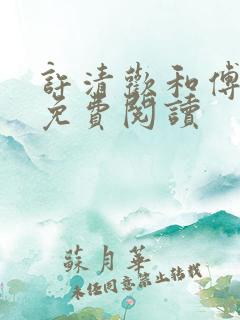 許清歡和傅
免費閱讀
蘇月華
未經同意禁止轉載